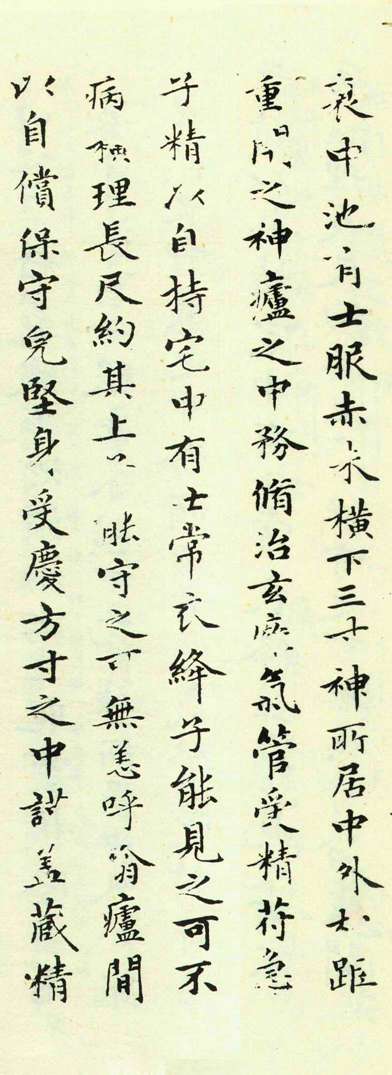 衰中池有士服赤衣橫下三寸神所居中外相距
重閉之神廬之中務脩治玄癰氣管受精符急
子精以自持宅中有士常衣絳子能見之可不
病橫理長尺約其上子能守之可無恙呼翕廬間
以自償保守皃堅身受慶方寸之中謹蓋藏精